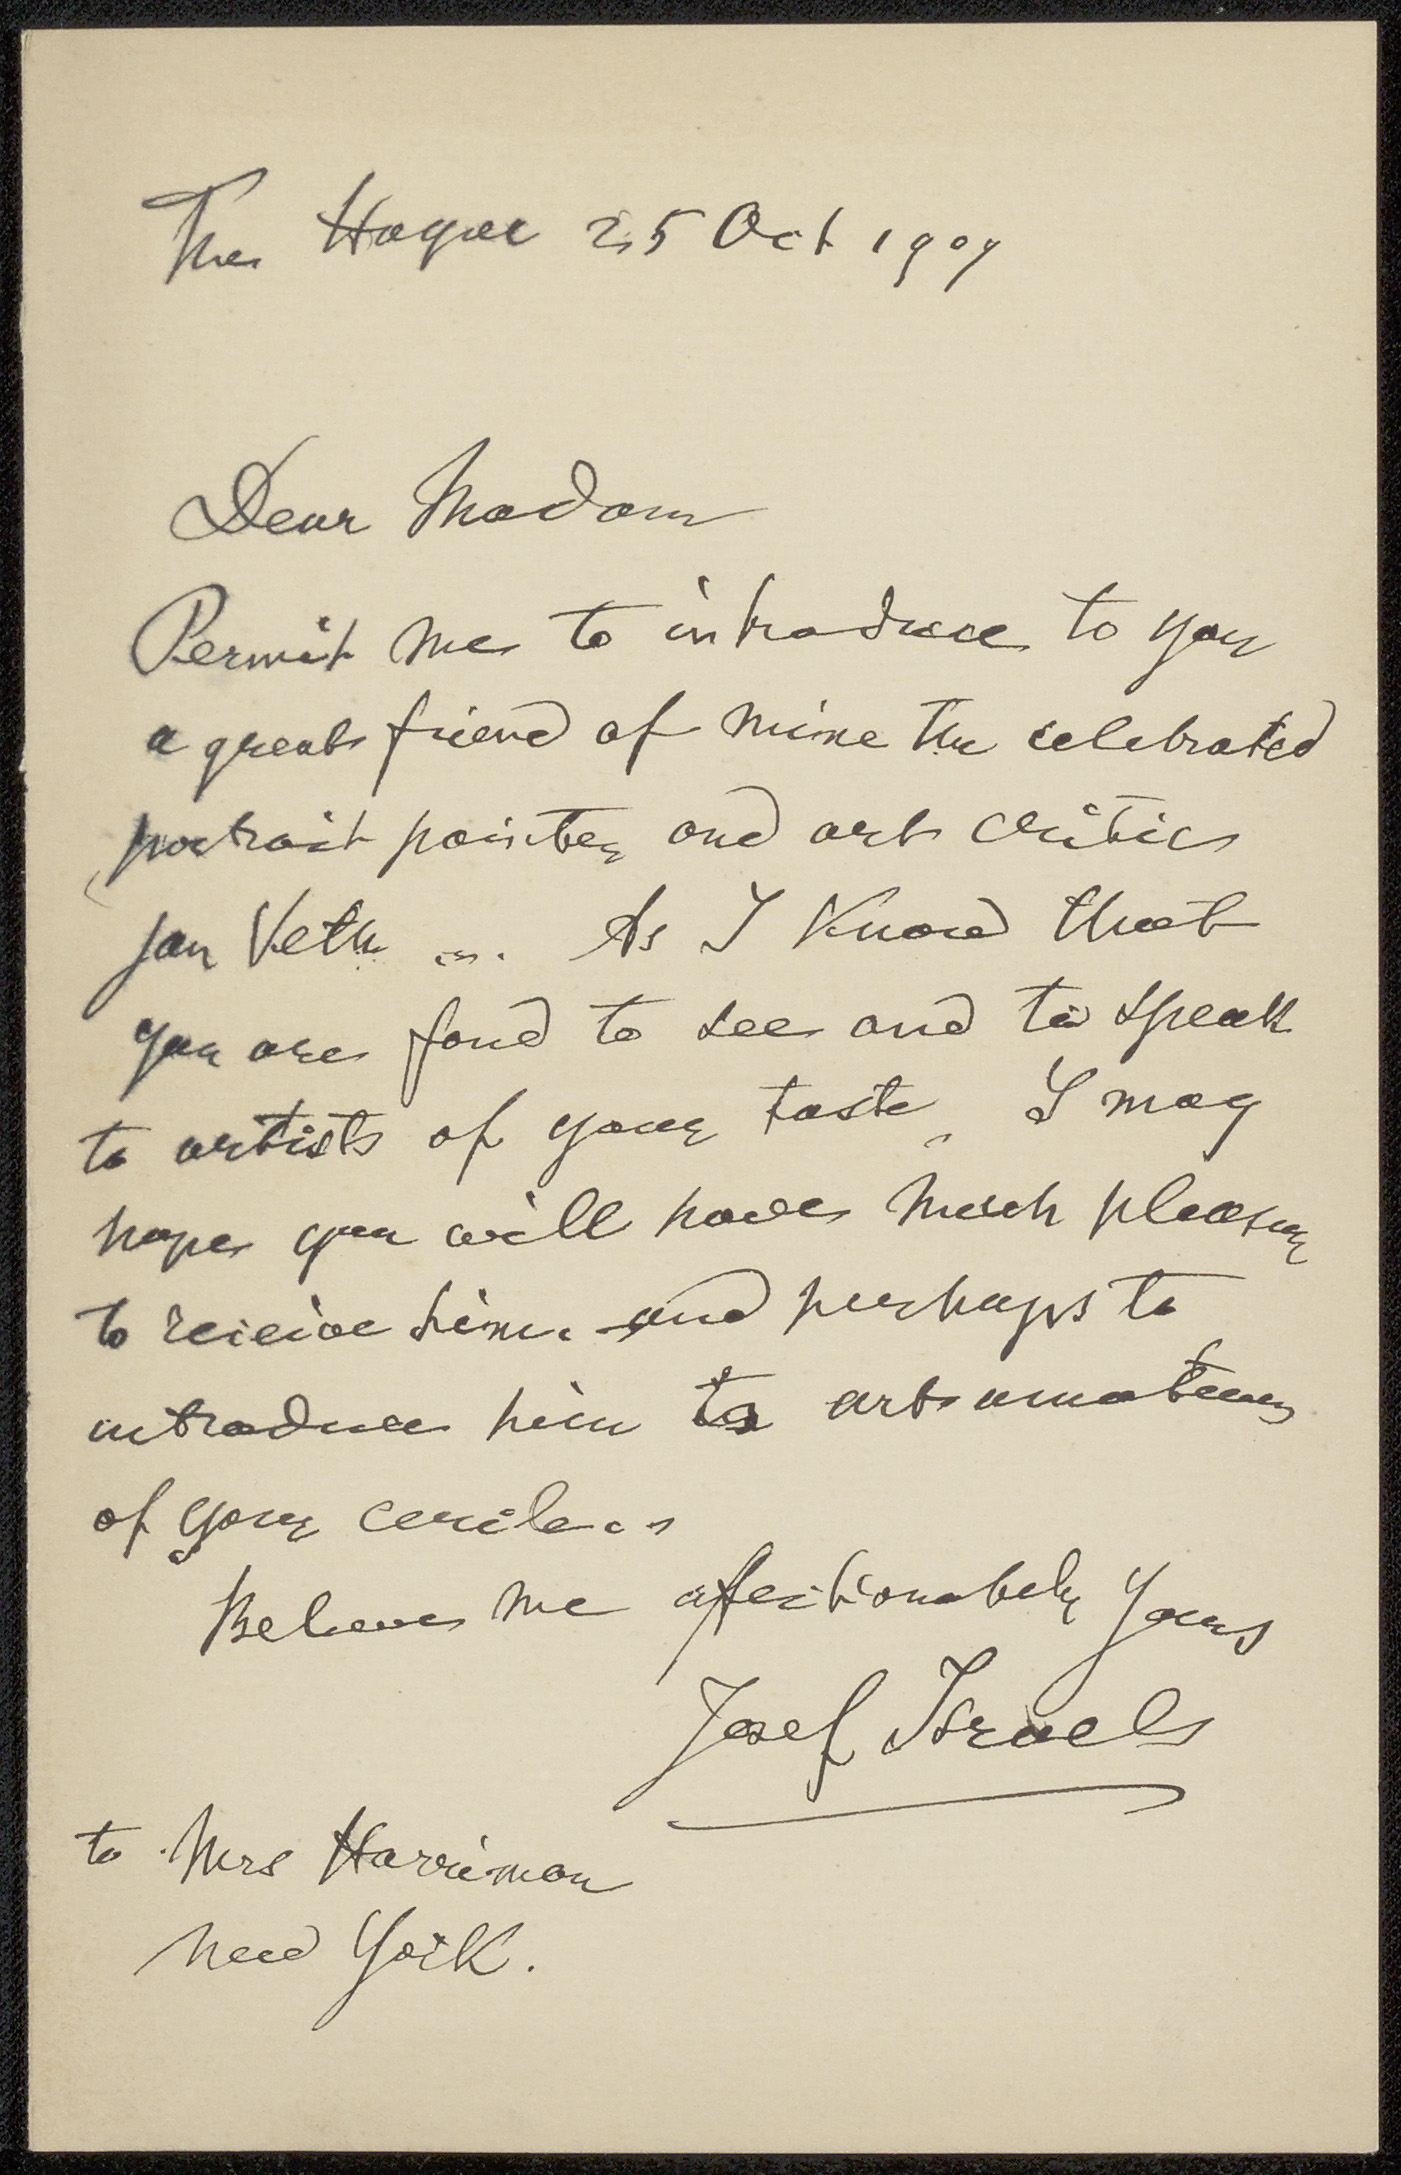 The Hague 25 Oct 1909
Dear Madam
Permit me to introduce to you
a great friend of mine the celebrated
portrait painter and art critic
Jan Veth ... As I know that
you are fond to see and to speak
to artists of your taste, I may
hope you will have much pleasure
to receive him. and perhaps to
introduce him to art amateurs
of your cercle..
Believe me afectionately yours
Josef Israels
to Mrs Harriman
New York.